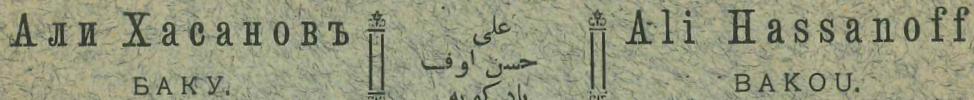 Али Хасановъ
БАКУ.
علی
حسن اوف
بادکوبه
Ali Hassanoff
BAKOU.